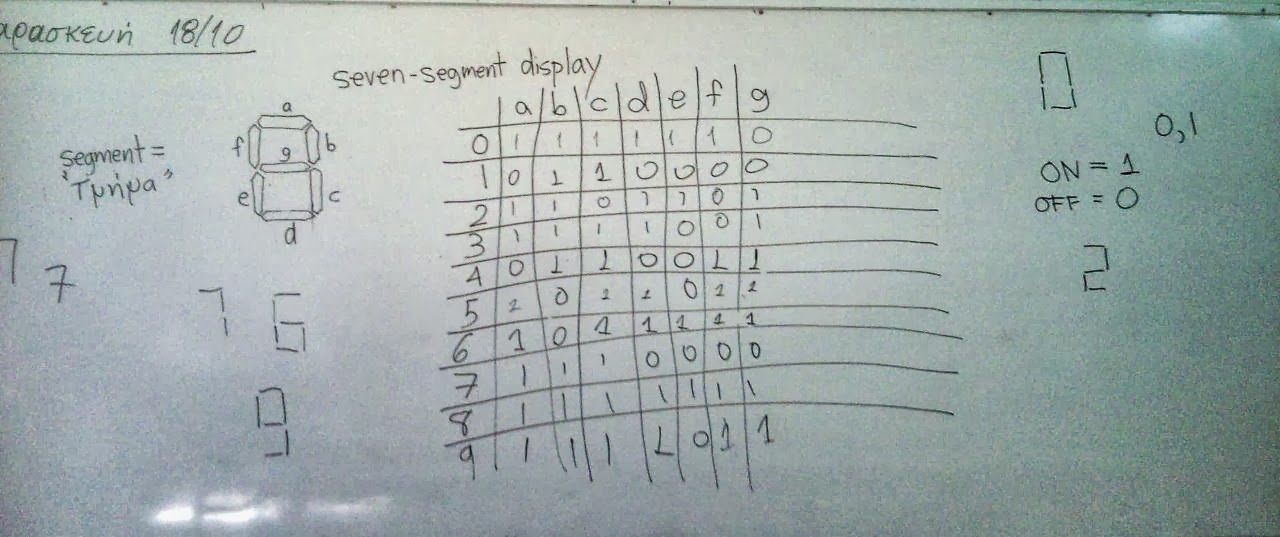 αρασκευή 18/10
seven-segment display
segment =
"Τμήμα"
a
f b
g
e c
d
7 7
7 6
9
a b c d e f g
0 1 1 1 1 1 1 0
1 0 1 1 0 0 0 0
2 1 1 0 1 1 0 1
3 1 1 1 1 0 0 1
4 0 1 1 0 0 1 1
5 1 0 1 1 0 1 1
6 1 0 1 1 1 1 1
7 1 1 1 0 0 0 0
8 1 1 1 1 1 1 1
9 1 1 1 1 0 1 1
0
0,1
ON = 1
OFF = 0
2